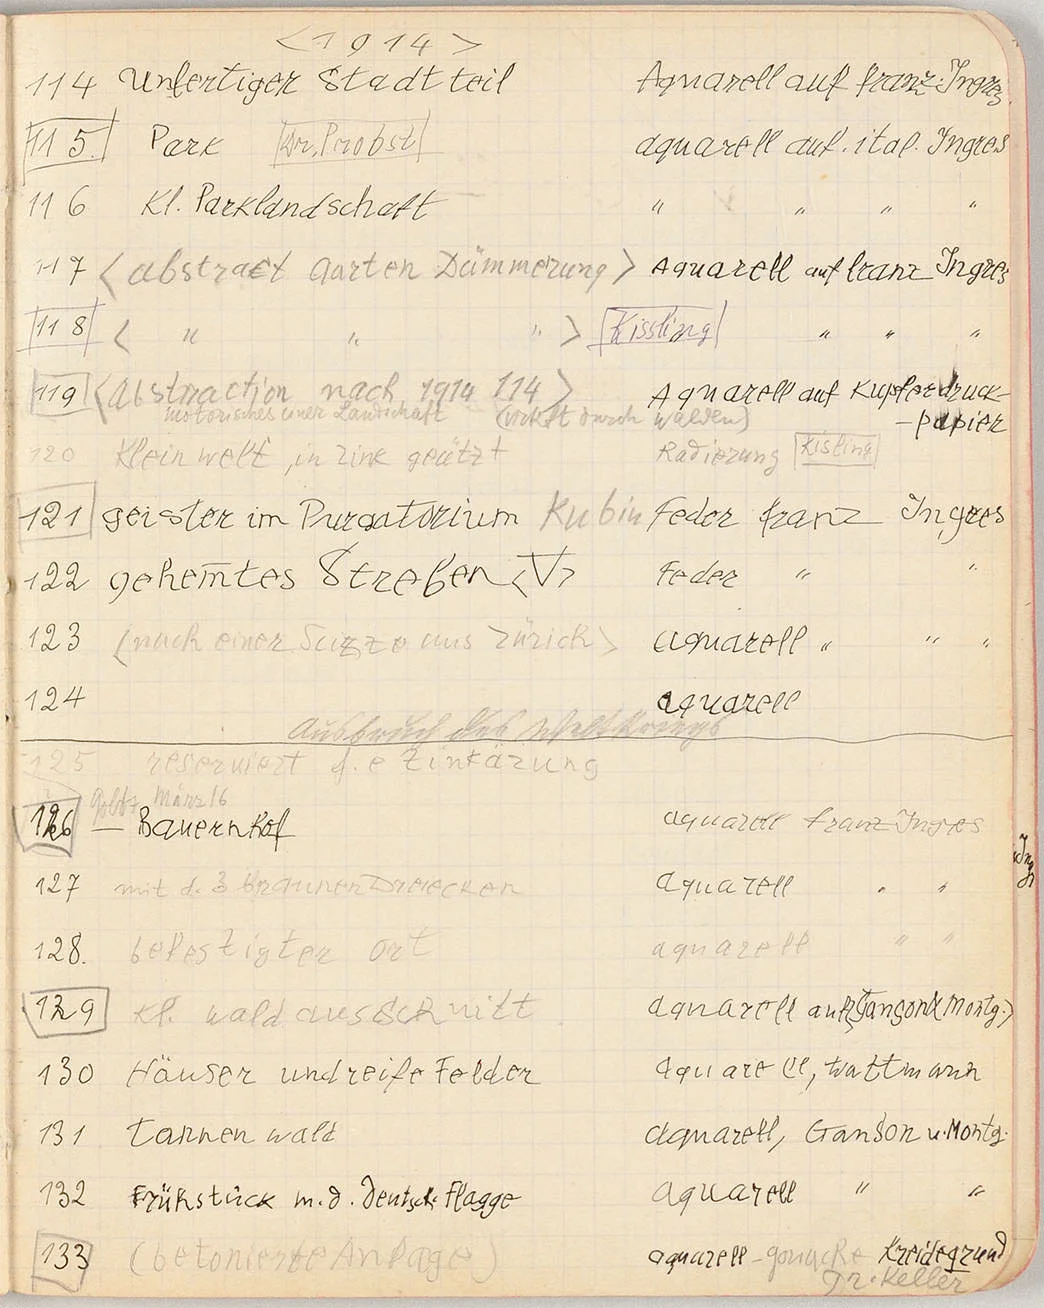 <1914>
114 Unfertiger Stadtteil Aquarell auf franz. Ingres
115. Park Dr. Probst aquarell auf. ital. Ingres
116 Kl. Parklandschaft " " " "
117 <abstract Garten Dämmerung> Aquarell auf franz Ingres
118 < " " " > Kissling " " "
119 <Abstraction nach 1914 114> Aquarell auf Kupferdruck-
motorisches einer Landschaft durch Wälden) -papier
120 Kleinwelt, in Zink geätzt Radierung Kisling
121 geister im Purgatorium Kubin Feder franz Ingres
122 gehem̅tes Streben <V> Feder " "
123 (nach einer Scizze aus Zürich> aquarell " " "
124 aquarell
Ausbruch des Weltkriegs
125 reserviert f. e Zinkäzung
März 16
126 — Bauernhof aquarell franz Ingres
Ingr
127 mit d. 3 braunen Dreiecken aquarell " "
128. befestigter ort aquarell " "
129 kl. waldausschnitt aquarell auf (Ganson u Montg.)
130 Häuser und reife Felder aquarell, Wattmann
131 tannen wald aquarell, Ganson u. Montg.
132 Frühstück m. d. deutsch. Flagge aquarell " "
133 (betonierte Anlage) aquarell - Kreidegrund
Gr. Keller